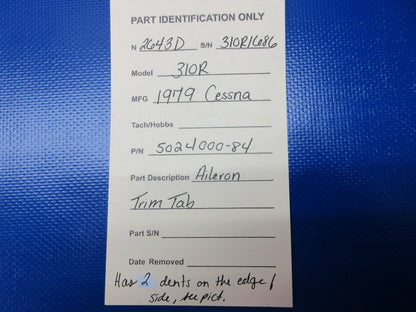 PART IDENTIFICATION ONLY
N 2643D S/N 310R1686
Model 310R
MFG 1979 Cessna
Tach/Hobbs
P/N 5024000-84
Part Description Aileron
Trim Tab
Part S/N
Date Removed
Has 2 dents on the edge/
side, see pict.